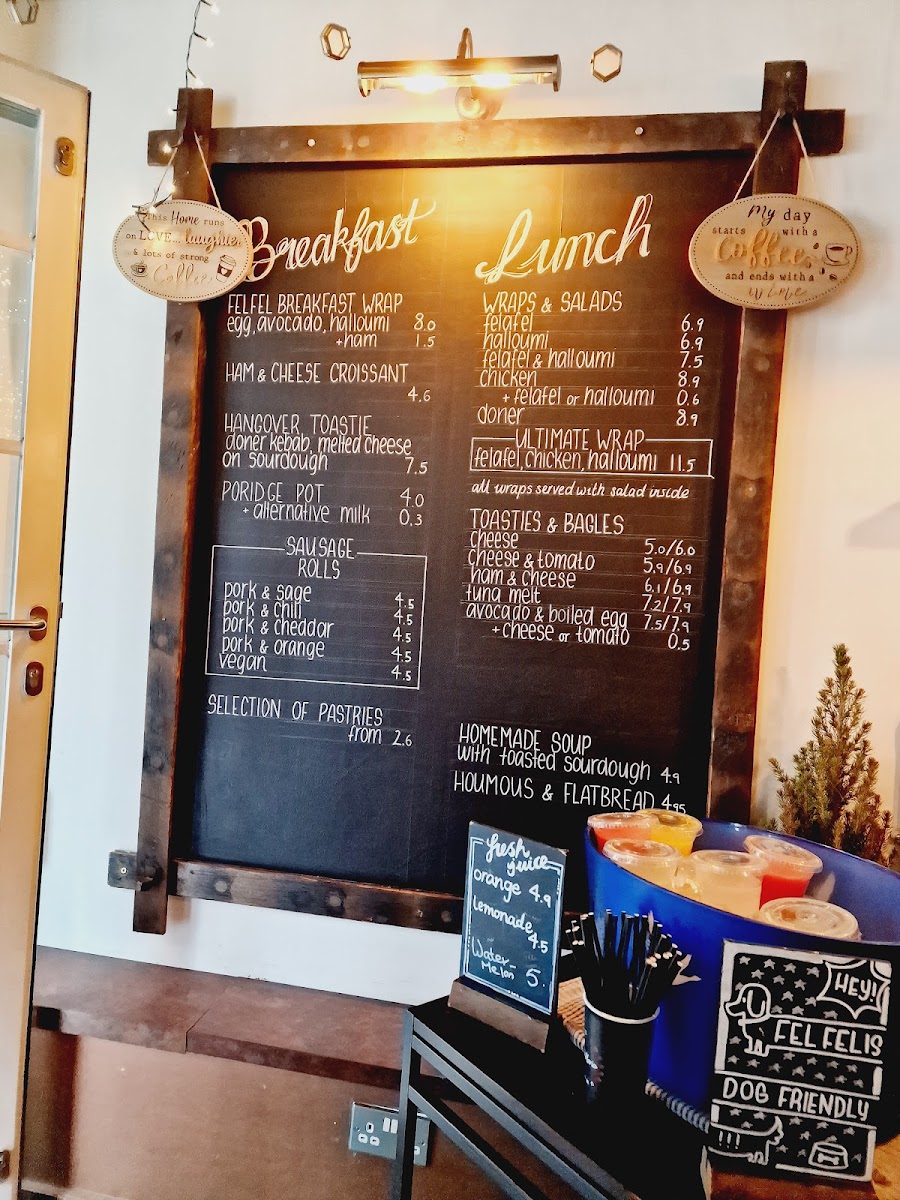 This Home runs
on LOVE... laughter
& lots of strong
Coffee
My day
starts with a
Coffee
and ends with a
Wine
Breakfast
FELFEL BREAKFAST WRAP
egg, avocado, halloumi 8.0
+ham 1.5
HAM & CHEESE CROISSANT
4.6
HANGOVER TOASTIE
doner kebab, melted cheese
on sourdough 7.5
PORIDGE POT 4.0
+ alternative milk 0.3
SAUSAGE
ROLLS
pork & sage 4.5
pork & chili 4.5
pork & cheddar 4.5
pork & orange 4.5
vegan 4.5
SELECTION OF PASTRIES
from 2.6
Lunch
WRAPS & SALADS
felafel 6.9
halloumi 6.9
felafel & halloumi 7.5
chicken 8.9
+ felafel or halloumi 0.6
doner 8.9
ULTIMATE WRAP
felafel, chicken, halloumi 11.5
all wraps served with salad inside
TOASTIES & BAGLES
cheese 5.0/6.0
cheese & tomato 5.9/6.9
ham & cheese 6.1/6.9
tuna melt 7.2/7.9
avocado & boiled egg 7.5/7.9
+cheese or tomato 0.5
HOMEMADE SOUP
with toasted sourdough 4.9
HOUMOUS & FLATBREAD 4.95
fresh
juice
orange 4.9
lemonade
4.5
Water-
Melon 5.
HEY!
FEL FEL IS
DOG FRIENDLY
!!!